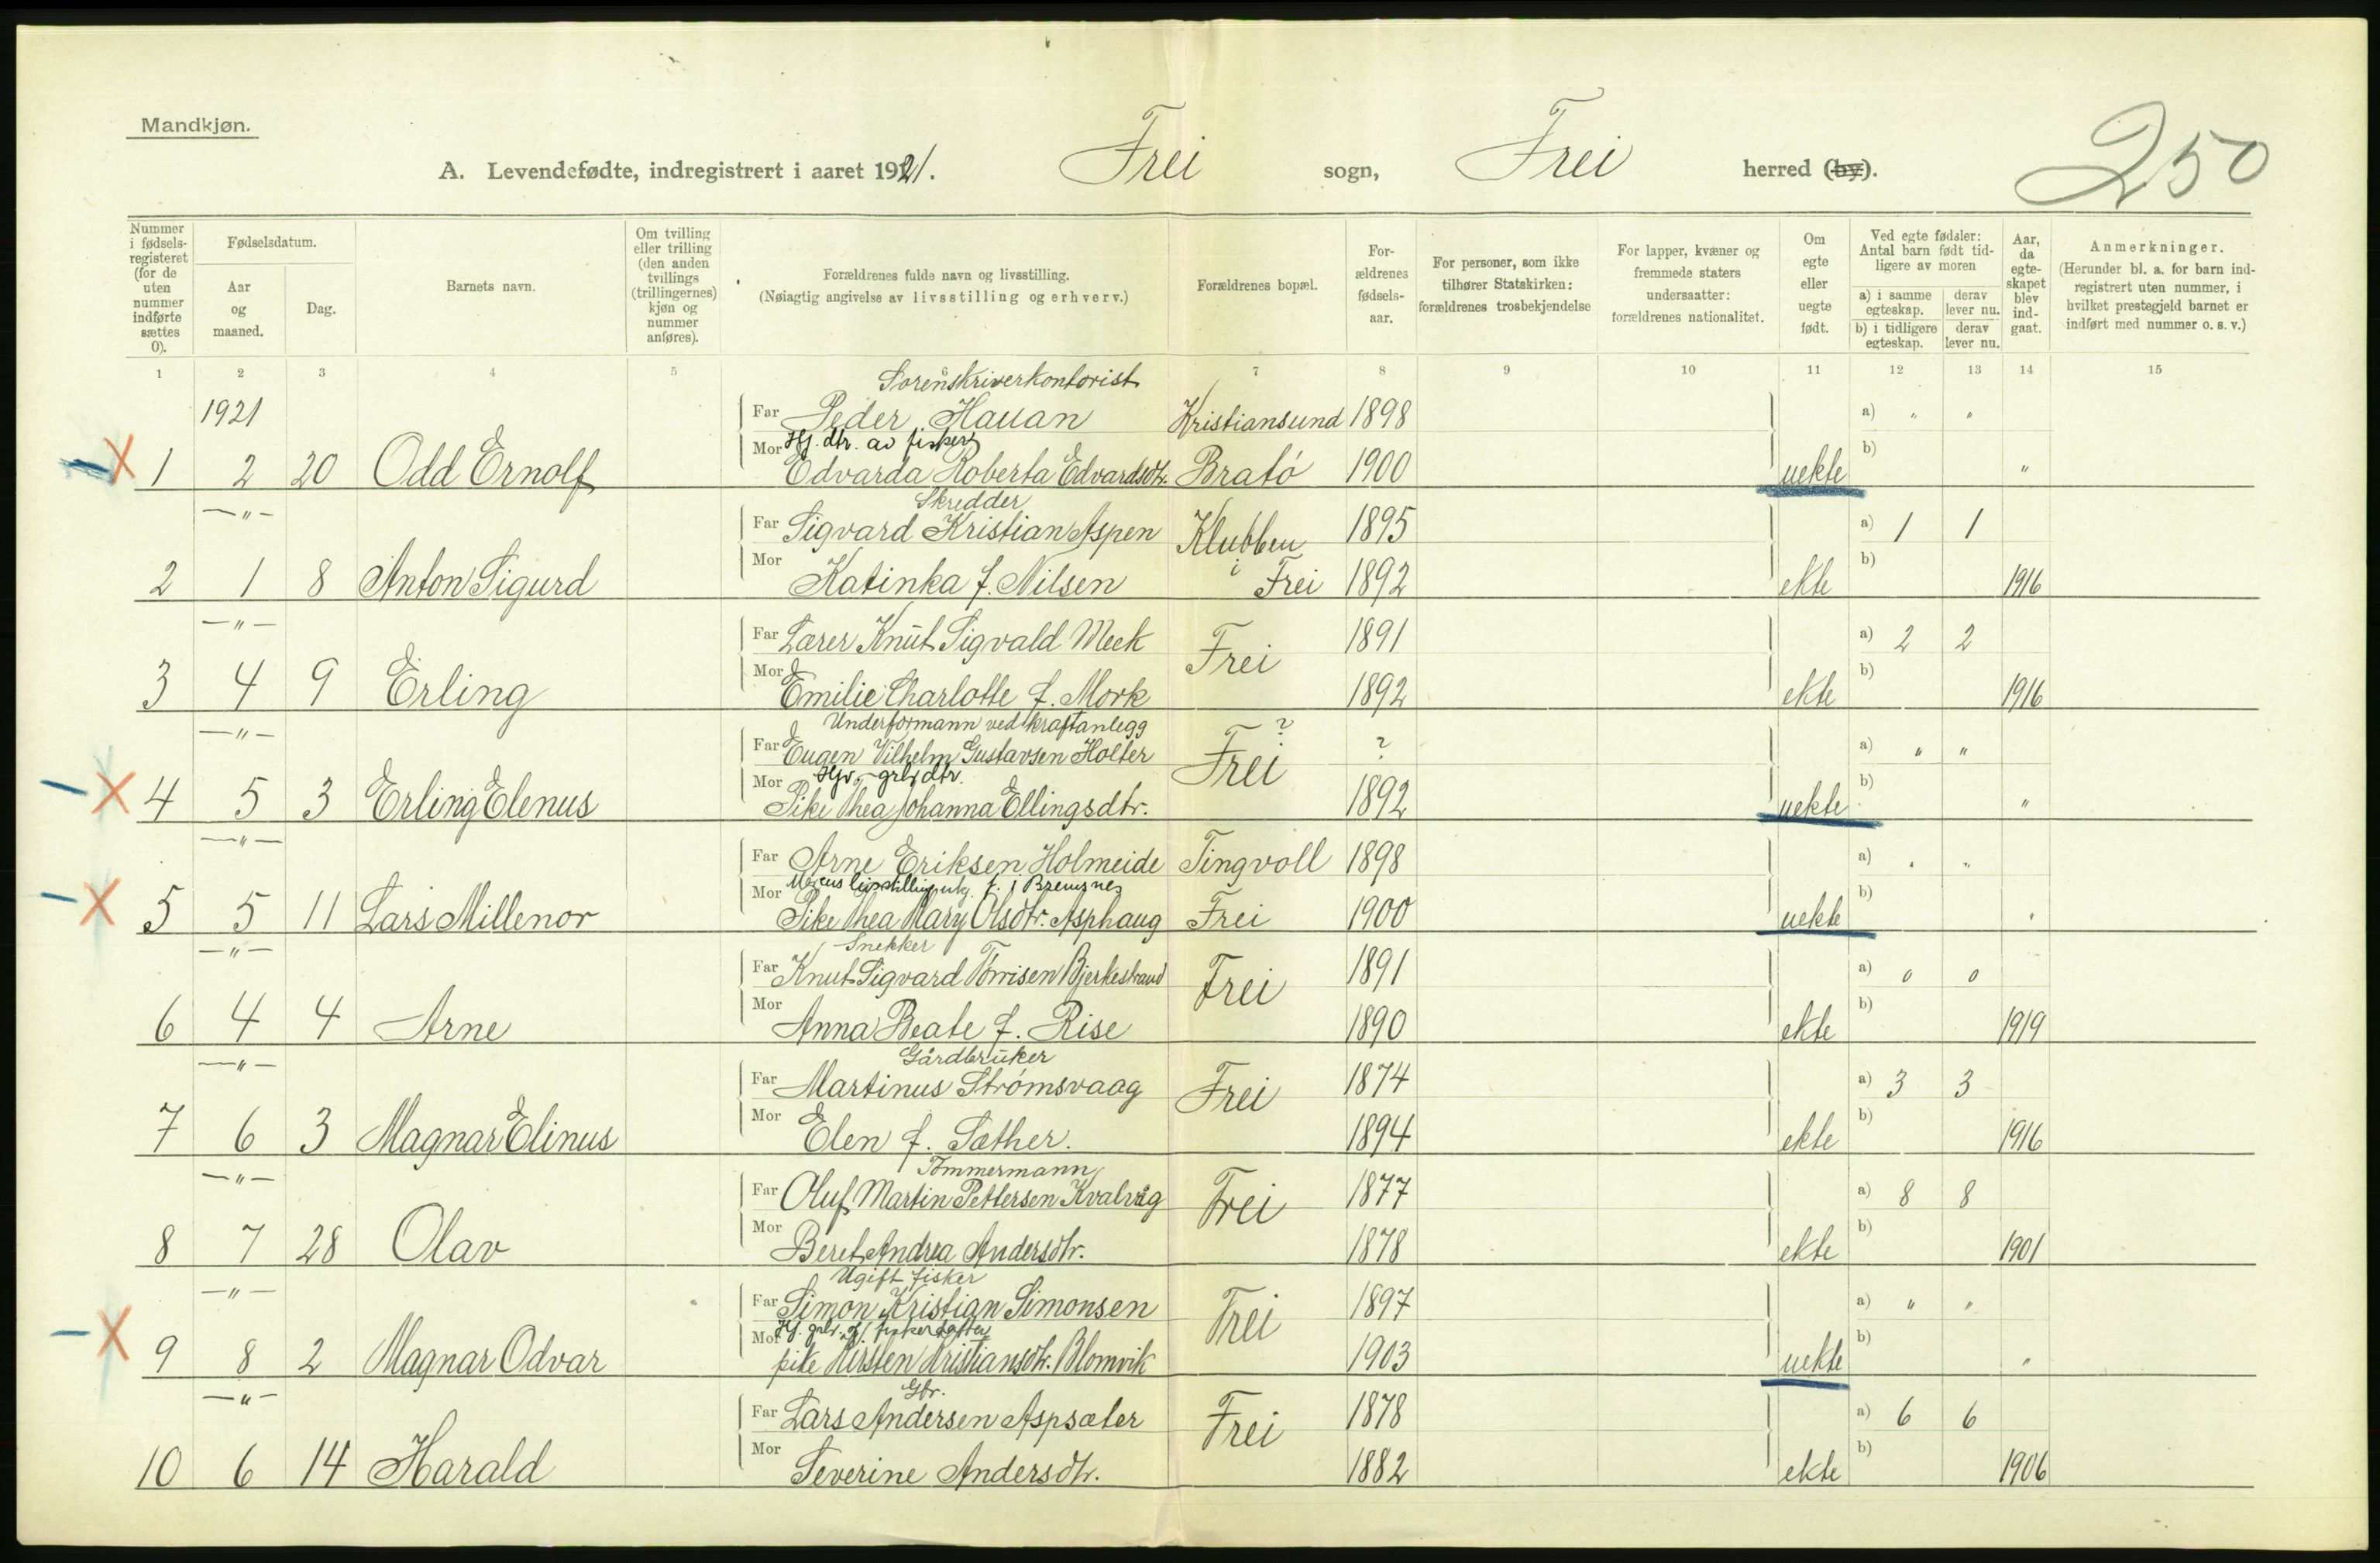 Mandkjøn.
A. Levendefødte, indregistrert i aaret 1921. Frei sogn, Frei herred (by). 250
Nummer i fødsels-registeret (for de uten nummer indførte sættes 0).
Fødselsdatum.
Aar og maaned.
Dag.
Barnets navn.
Om tvilling eller trilling (den anden tvillings (trillingernes) kjøn og nummer anføres).
Forældrenes fulde navn og livsstilling.
(Nøiagtig angivelse av livsstilling og erhverv.)
Forældrenes bopæl.
For-ældrenes fødsels-aar.
For personer, som ikke tilhører Statskirken: forældrenes trosbekjendelse
For lapper, kvæner og fremmede staters undersaatter: forældrenes nationalitet.
Om egte eller uegte født.
Ved egte fødsler: Antal barn født tid-ligere av moren
a) i samme egteskap. derav lever nu.
b) i tidligere egteskap. derav lever nu.
Aar, da egte-skapet blev ind-gaat.
Anmerkninger.
(Herunder bl. a. for barn ind-registrert uten nummer, i hvilket prestegjeld barnet er indført med nummer o. s. v.)
1 2 3 4 5 7 8 9 10 11 12 13 14 15
Sorenskriverkontorist
1921 Far Peder Hauan Kristiansund 1898 a) " "
Mor Hj. dtr. av fisker b)
X 1 2 20 Odd Ernolf Edvarda Roberta Edvardsdtr. Bratø 1900 uekte "
Skredder
—"— Far Sigvard Kristian Aspen Klubben 1895 a) 1 1
2 1 8 Anton Sigurd Mor Katinka f. Nilsen i Frei 1892 ekte b) 1916
—"— Far Lærer Knut Sigvald Meek Frei 1891 a) 2 2
3 4 9 Erling Mor Emilie Charlotte f. Mork 1892 ekte b) 1916
Underformann ved kraftanlegg ?
—"— Far Eugen Vilhelm Gustavsen Holter Frei ? a) " "
Mor Hjv. grbr dtr. b)
X 4 5 3 Erling Elenus Pike Thea Johanna Ellingsdtr. 1892 uekte "
—"— Far Arne Eriksen Holmeide Tingvoll 1898 a) " "
Mor livsstilling f. i Bremsnes b)
X 5 5 11 Lars Millenor Pike Thea Mary Olsdtr. Asphaug Frei 1900 uekte "
Snekker
—"— Far Knut Sigvard Tørrisen Bjerkestrand Frei 1891 a) 0 0
6 4 4 Arne Mor Anna Beate f. Rise 1890 ekte b) 1919
Gårdbruker
—"— Far Martinus Strømsvaag Frei 1874 a) 3 3
7 6 3 Magnar Elinus Mor Elen f. Sæther. 1894 ekte b) 1916
Tømmermann
—"— Far Oluf Martin Pettersen Kvalvåg Frei 1877 a) 8 8
8 7 28 Olav Mor Beret Andrea Andersdtr. 1878 ekte b) 1901
Ugift fisker
—"— Far Simon Kristian Simonsen Frei 1897 a) " "
Mor Hj. b)
X 9 8 2 Magnar Odvar pike Kirsten Kristiansdtr. Blomvik 1903 uekte "
Gbr.
—"— Far Lars Andersen Aspsæter Frei 1878 a) 6 6
10 6 14 Harald Mor Severine Andersdtr. 1882 ekte b) 1906